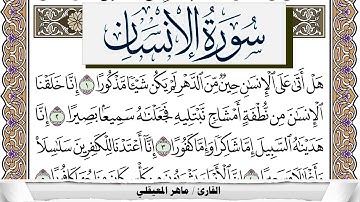 سُورَةُ الْإِنسَانِ
هَلْ أَتَىٰ عَلَى الْإِنسَٰنِ حِينٌ مِّنَ الدَّهْرِ لَمْ يَكُن شَيْـًٔا مَّذْكُورًا ١ إِنَّا خَلَقْنَا
الْإِنسَٰنَ مِن نُّطْفَةٍ أَمْشَاجٍ نَّبْتَلِيهِ فَجَعَلْنَٰهُ سَمِيعًۢا بَصِيرًا ٢ إِنَّا
هَدَيْنَٰهُ السَّبِيلَ إِمَّا شَاكِرًا وَإِمَّا كَفُورًا ٣ إِنَّا أَعْتَدْنَا لِلْكَٰفِرِينَ سَلَٰسِلَا۟
القارئ / ماهر المعيقلي